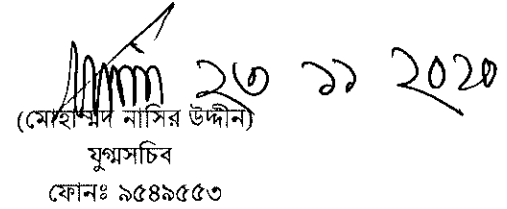 ২৩ ১১ ২০২০
(মোহাম্মদ নাসির উদ্দীন)
যুগ্মসচিব
ফোনঃ ৯৫৪৯৫৫৩